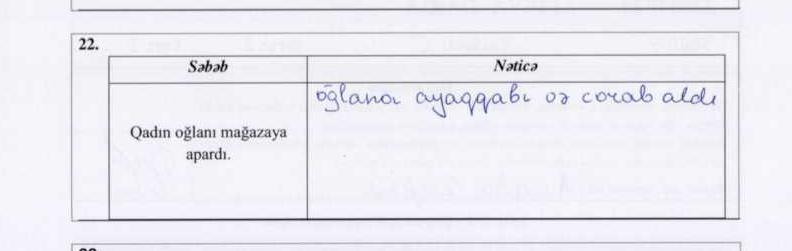 22.
Səbəb Nəticə
oğlana ayaqqabı və corab aldı
Qadın oğlanı mağazaya
apardı.